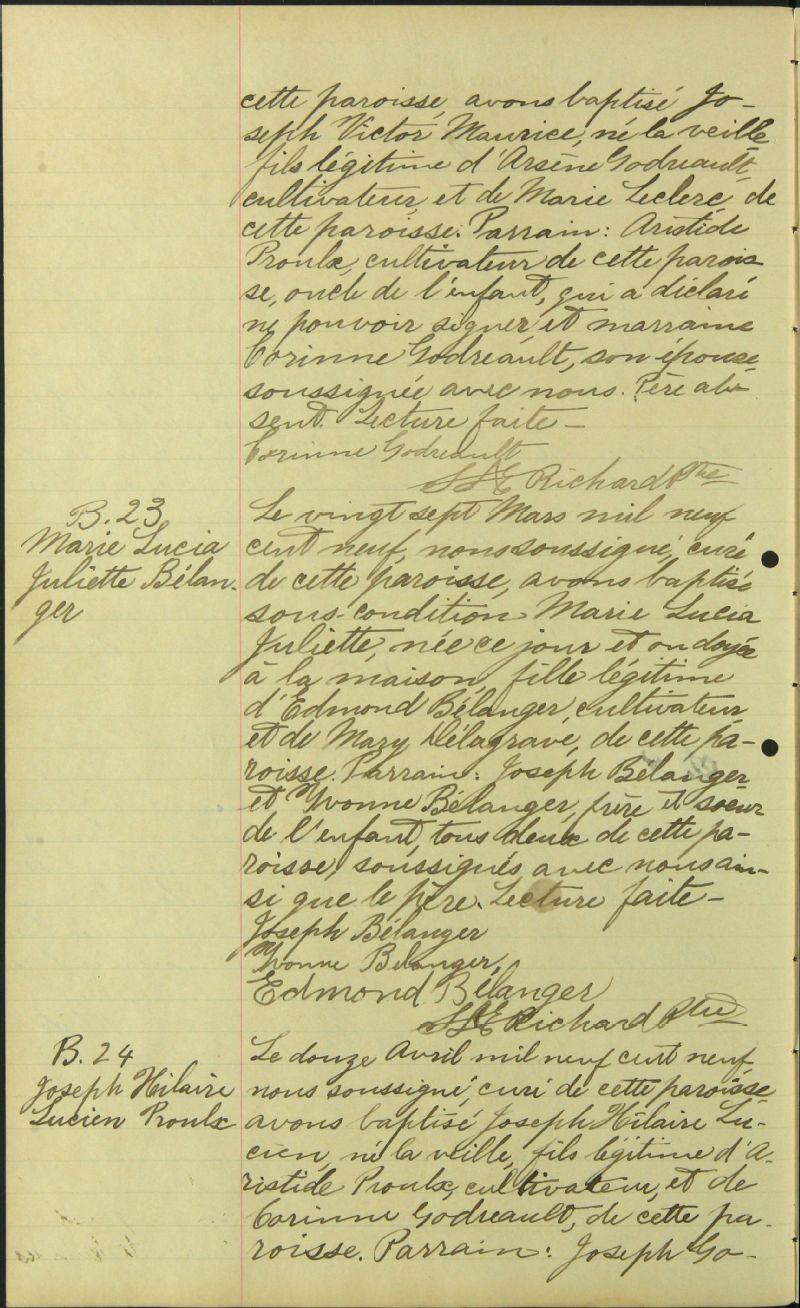 cette paroisse, avons baptisé Jo-
seph Victor Maurice, né la veille
fils légitime d'Arsène Godreault,
cultivateur, et de Marie Leclerc, de
cette paroisse. Parrain: Aristide
Proulx, cultivateur de cette parois
se, oncle de l'enfant, qui a déclaré
ne pouvoir signer et marraine
Corinne Godreault, son épouse
soussignée avec nous. Père ab-
sent. Lecture faite —
Corinne Godreault
Richard Ptre
B. 23
Marie Lucia
Juliette Bélan-
ger
Le vingt sept Mars mil neuf
cent neuf, nous soussigné, curé
de cette paroisse, avons baptisé
sous-condition Marie Lucia
Juliette, née ce jour et ondoyée
à la maison, fille légitime
d'Edmond Bélanger, cultivateur
et de Mary Délagrave, de cette pa-
roisse. Parrain: Joseph Bélanger
et Yvonne Bélanger, frère et soeur
de l'enfant, tous deux de cette pa-
roisse, soussignés avec nous ain-
si que le père. Lecture faite —
Joseph Bélanger
Yvonne Belanger,
Edmond Bélanger
Richard Ptre
B. 24
Joseph Hilaire
Lucien Proulx
Le douze Avril mil neuf cent neuf,
nous soussigné, curé de cette paroisse
avons baptisé Joseph Hilaire Lu-
cien, né la veille, fils légitime d'A-
ristide Proulx, cultivateur, et de
Corinne Godreault, de cette pa-
roisse. Parrain: Joseph Go-